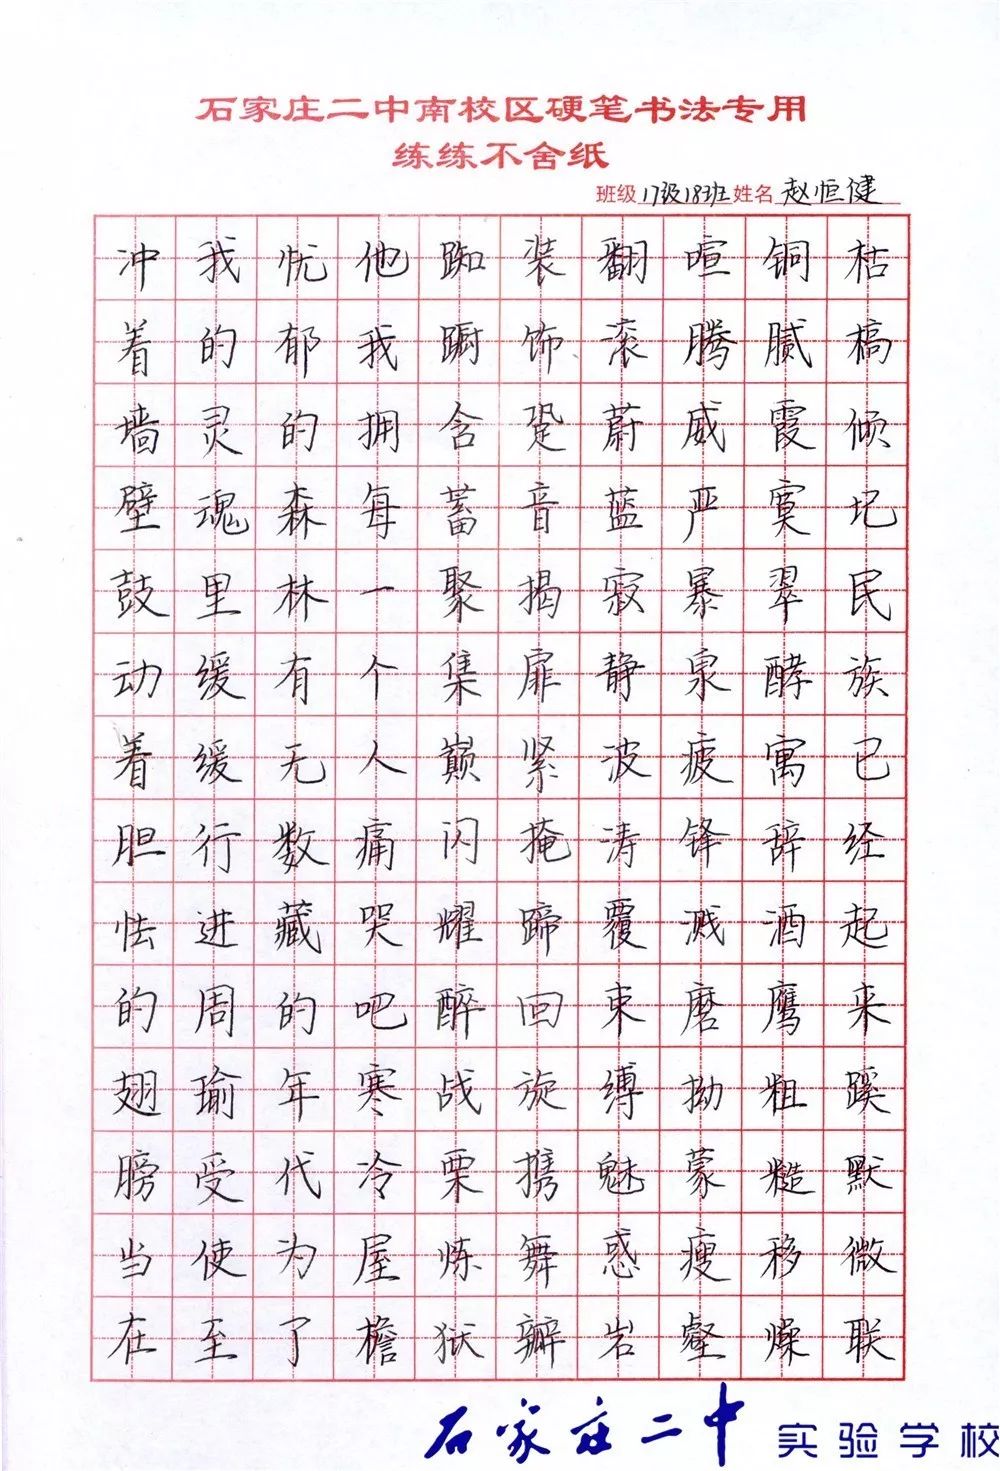 石家庄二中南校区硬笔书法专用
练练不舍纸
班级 17级18班 姓名 赵恒健
冲我忧他踟装翻喧铜枯
着的郁我蹰饰滚腾腻槁
墙灵的拥含跫蔚威霞倾
壁魂森每蓄音蓝严寞圮
鼓里林一聚揭寂暴翠民
动缓有个集扉静泉酵族
着缓无人巅紧波疲寓已
胆行数痛闪掩涛锋辞经
怯进藏哭耀蹄覆溅酒起
的周的吧醉回束磨鹰来
翅瑜年寒战旋缚拗粗蹊
膀受代冷栗携魅蒙糙默
当使为屋炼舞惑瘦移微
在至了檐狱瓣岩壑燥联
石家庄二中 实验学校